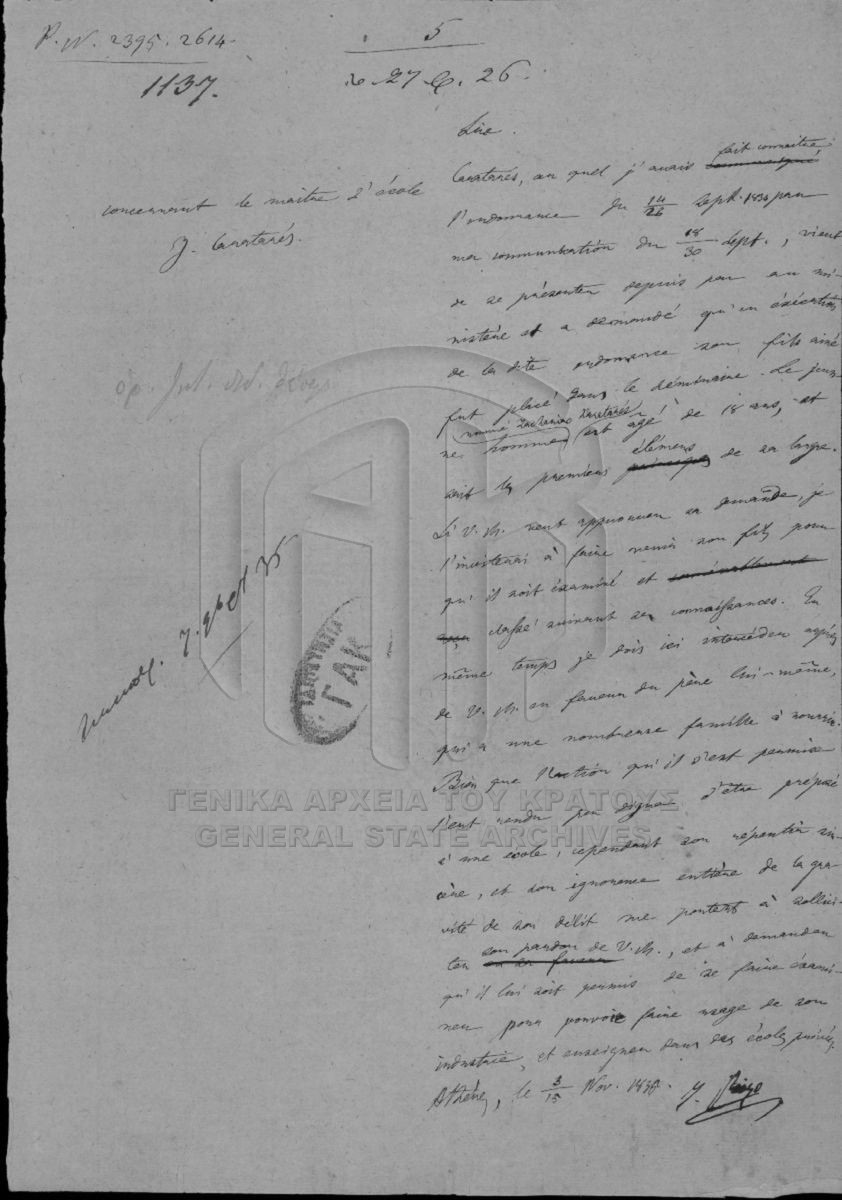 P. N. 2395. 2614
1137.
5
27 26.
concernant le maître d'école
J. Caratarés.
Sire.
fait connaitre,
Caratarés, au quel j'avais communiqué
l'ordonnance du 14/26 Sept. 1834 par
ma communication du 18/30 Sept., vient
de se présenter depuis peu au mi-
nistère et a demandé qu'en exécution
de la dite ordonnance son fils ainé
fut placé dans le séminaire. Le jeu-
nommé Zacharias Caratarés
ne homme est agé de 18 ans, et
élémens
sait les premiers principes de sa langue.
Si V. M. veut approuver sa demande, je
l'inviterai à faire venir son fils pour
qu'il soit éxaminé et
classé suivant ses connaissances. En
même temps je dois ici intercéder auprès
de V. M. en faveur du père lui-même,
qui a une nombreuse famille à nourrir.
Bien que l'action qu'il s'est permise
l'ent rendu peu digne d'être préposé
à une école, cependant son repentir sin-
cère, et son ignorance entière de la gra-
vité de son délit me portent à sollici-
son pardon
ter en sa faveur de V. M., et à demander
qu'il lui soit permis de se faire éxami-
ner pour pouvoir faire usage de son
industrie, et enseigner dans des écoles privées.
Athènes, le 3/15 Nov. 1834. J. Rizo
ΓΑΚ
ΓΕΝΙΚΑ ΑΡΧΕΙΑ ΤΟΥ ΚΡΑΤΟΥΣ
GENERAL STATE ARCHIVES